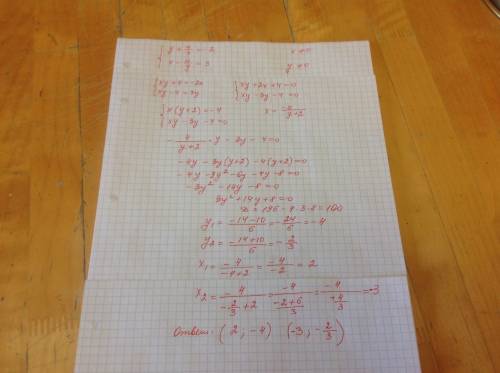 { y + 4/x = -2    x ≠ 0
{ x - 4/y = 3    y ≠ 0
{ xy + 4 = -2x    { xy + 2x + 4 = 0
{ xy - 4 = 3y    { xy - 3y - 4 = 0
{ x(y+2) = -4    x = -4/(y+2)
{ xy - 3y - 4 = 0
- 4/(y+2) · y - 3y - 4 = 0
-4y - 3y(y+2) - 4(y+2) = 0
-4y - 3y² - 6y - 4y - 8 = 0
-3y² - 14y - 8 = 0
3y² + 14y + 8 = 0
D = 196 - 4·3·8 = 100
y₁ = (-14-10)/6 = -24/6 = -4
y₂ = (-14+10)/6 = -2/3
x₁ = -4/(-4+2) = -4/-2 = 2
x₂ = -4/(-2/3 + 2) = -4/((-2+6)/3) = -4/(4/3) = -3
Ответ: (2; -4) (-3; -2/3)